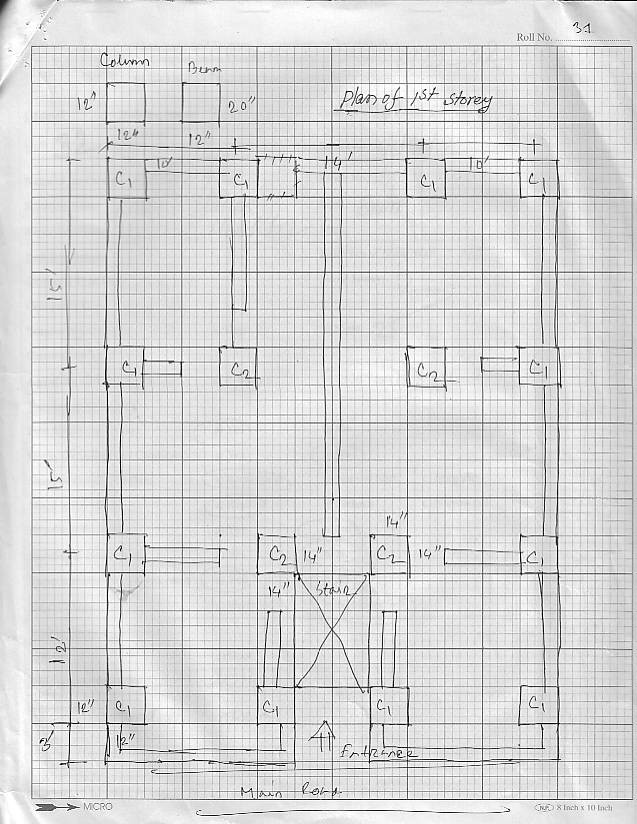 31
Roll No.
Column
Beam
12"
20"
Plan of 1st Storey
12"
12"
10'
14'
10'
C1
C1
C1
C1
15'
C1
C2
C2
C1
15'
14"
C1
C2
14"
C2
14"
C1
14"
Stair
12'
12"
C1
C1
C1
C1
3'
12"
Entrance
Main Road
MICRO
8 Inch x 10 Inch